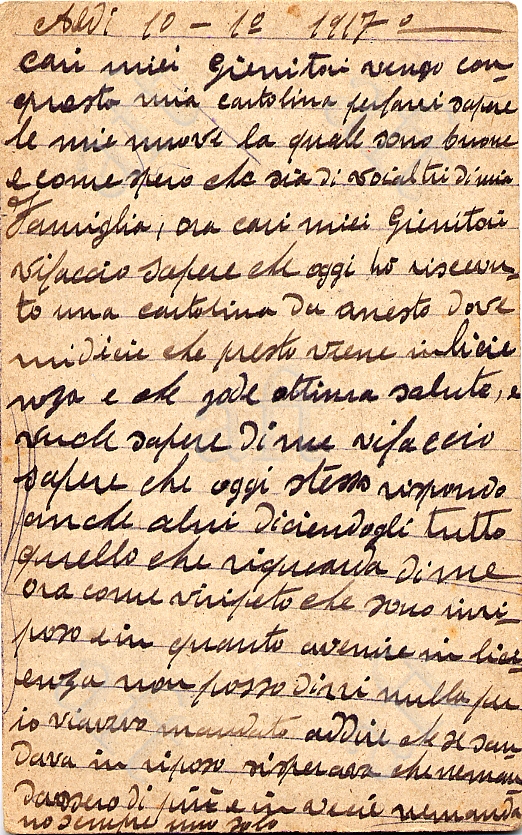 Aldi 10 - 12 1917
cari miei Gienitori vengo con
questa mia cartolina perfarvi sapere
le mie nuove la quale sono buone
e come spero che sia di voialtri di mia
Famiglia, ora cari miei Gienitori
vifaccio sapere che oggi ho riscevu-
to una cartolina da anesto dove
midicie che presto viene inlicie
nza e che gode ottima salute, e
vuole sapere di me vifaccio
sapere che oggi stesso rispondo
anche alui diciendogli tutto
quello che riguarda dime
ora come viripeto che sono inri-
poso e in quanto avenire in lici-
enza non posso dirvi nulla per
io viavevo mandato addire che se san
dava in riposo sisperava che neman
dassero di più e in vecie nemanda
no sempre uno solo